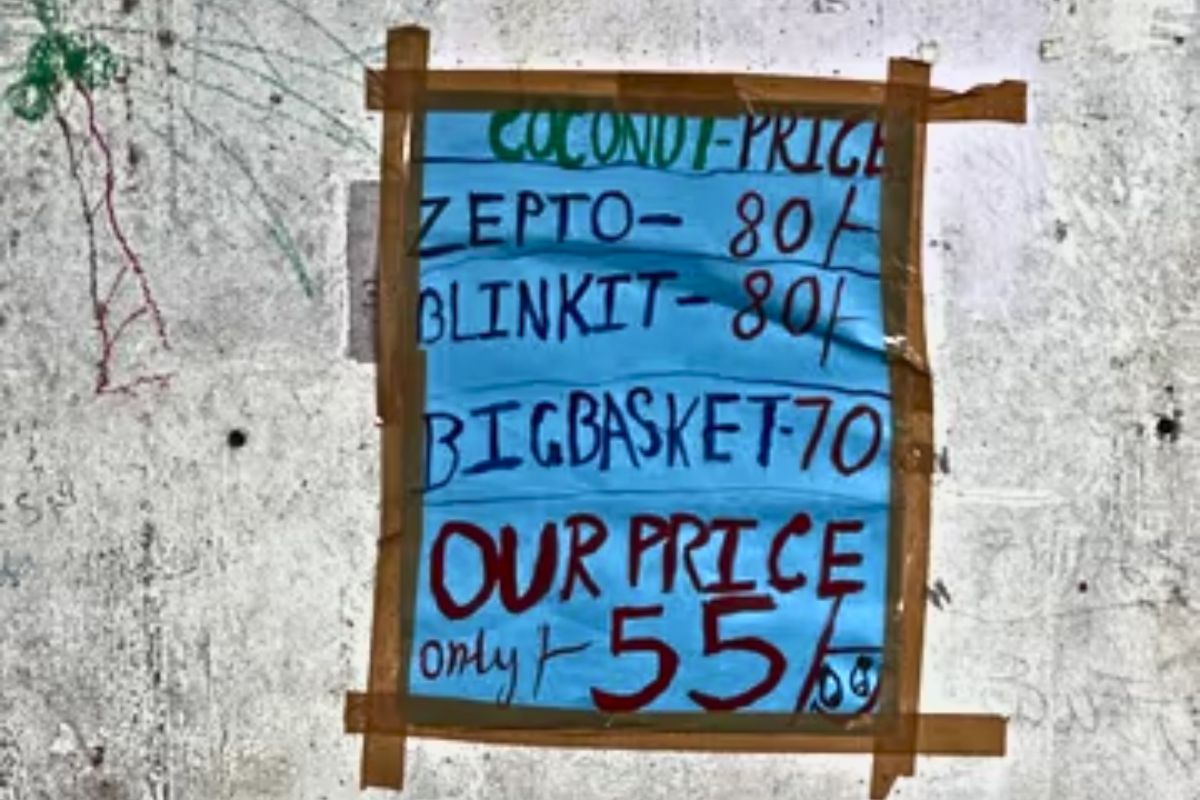 COCONUT-PRICE
ZEPTO- 80/-
BLINKIT- 80/-
BIGBASKET-70
OUR PRICE
only 55/